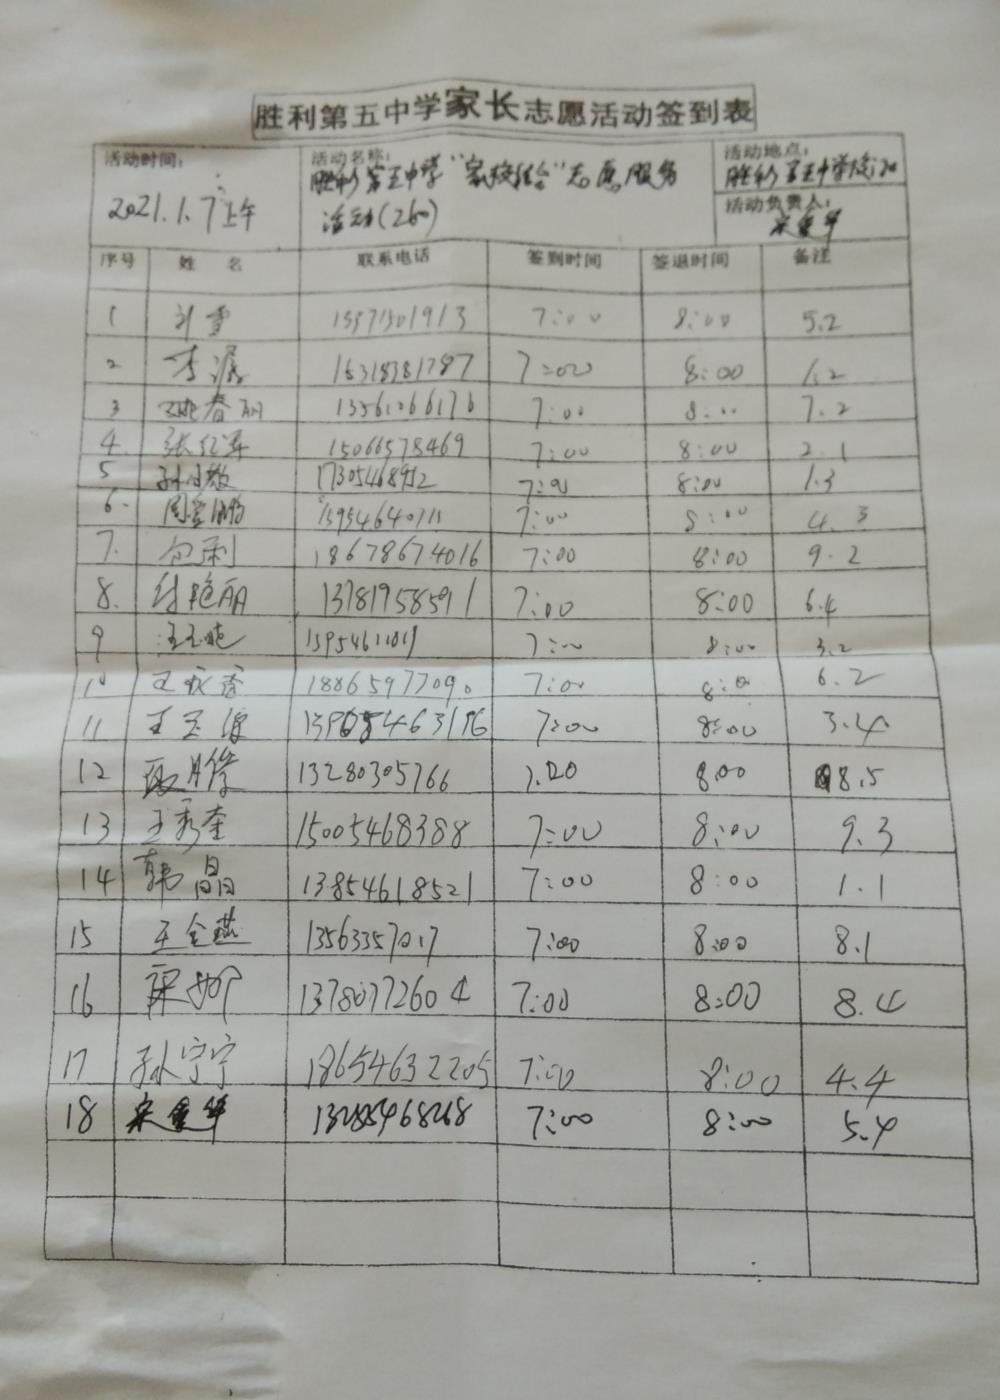 胜利第五中学家长志愿活动签到表
活动时间: 活动名称: 活动地点:
2021.1.7上午 胜利第五中学"家校结合"志愿服务 胜利第五中学
活动(260) 活动负责人:
序号 姓名 联系电话 签到时间 签退时间 备注
1 刘雪 7:00 8:00 5.2
2 李 7:00 8:00 1.2
3 姚春丽 7:00 8:00 7.2
4. 张红军 15066578469 7:00 8:00 2.1
5 17305468952 7:00 8:00 1.3
6. 13954640711 7:00 8:00 4.3
7. 18678674016 7:00 8:00 9.2
8. 付艳丽 13781958591 7:00 8:00 6.4
9 7:00 8:00 3.2
10 18865977090 7:00 8:00 6.2
11 王玉 7:00 8:00 3.4
12 13280305766 7:00 8:00 8.5
13 王秀奎 15005468388 7:00 8:00 9.3
14 韩晶 13854618521 7:00 8:00 1.1
15 王金燕 13563357017 7:00 8:00 8.1
16 13780772604 7:00 8:00 8.4
17 孙宁宁 18654632205 7:00 8:00 4.4
18 13285468268 7:00 8:00 5.4